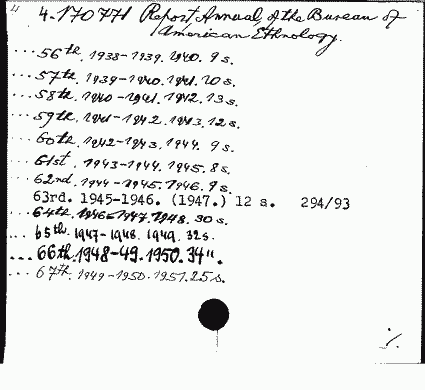 4.170771 Report, Annual, of the Bureau of
American Ethnology.
... 56th. 1938-1939. 1940. 9 s.
... 57th. 1939-1940. 1941. 10 s.
... 58th. 1940-1941. 1942. 13 s.
... 59th. 1941-1942. 1943. 12 s.
... 60th. 1942-1943. 1944. 9 s.
... 61st. 1943-1944. 1945. 8 s.
... 62nd. 1944-1945. 1946. 9 s.
63rd. 1945-1946. (1947.) 12 s. 294/93
... 64th. 1946-1947. 1948. 30 s.
... 65th. 1947-1948. 1949. 32 s.
... 66th. 1948-49. 1950. 34".
... 67th. 1949-1950. 1951. 25 s.